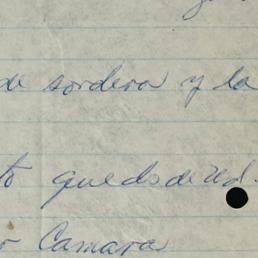 de sordera y la
to quedo de Ud.
Camara